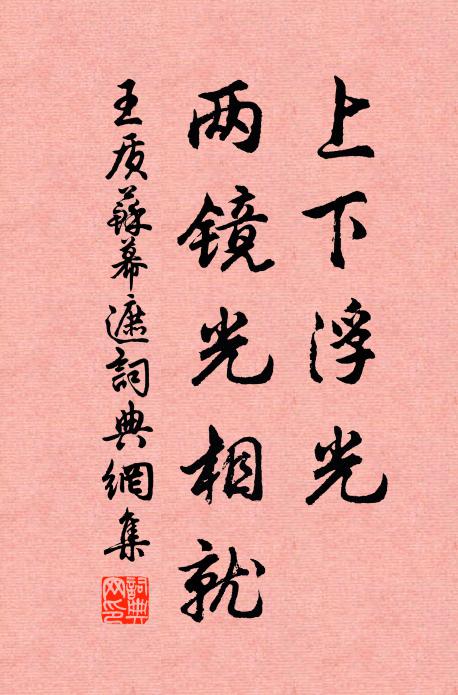 上下浮光
两镜光相就
王质蘇幕遮詞典網集
詞典网印